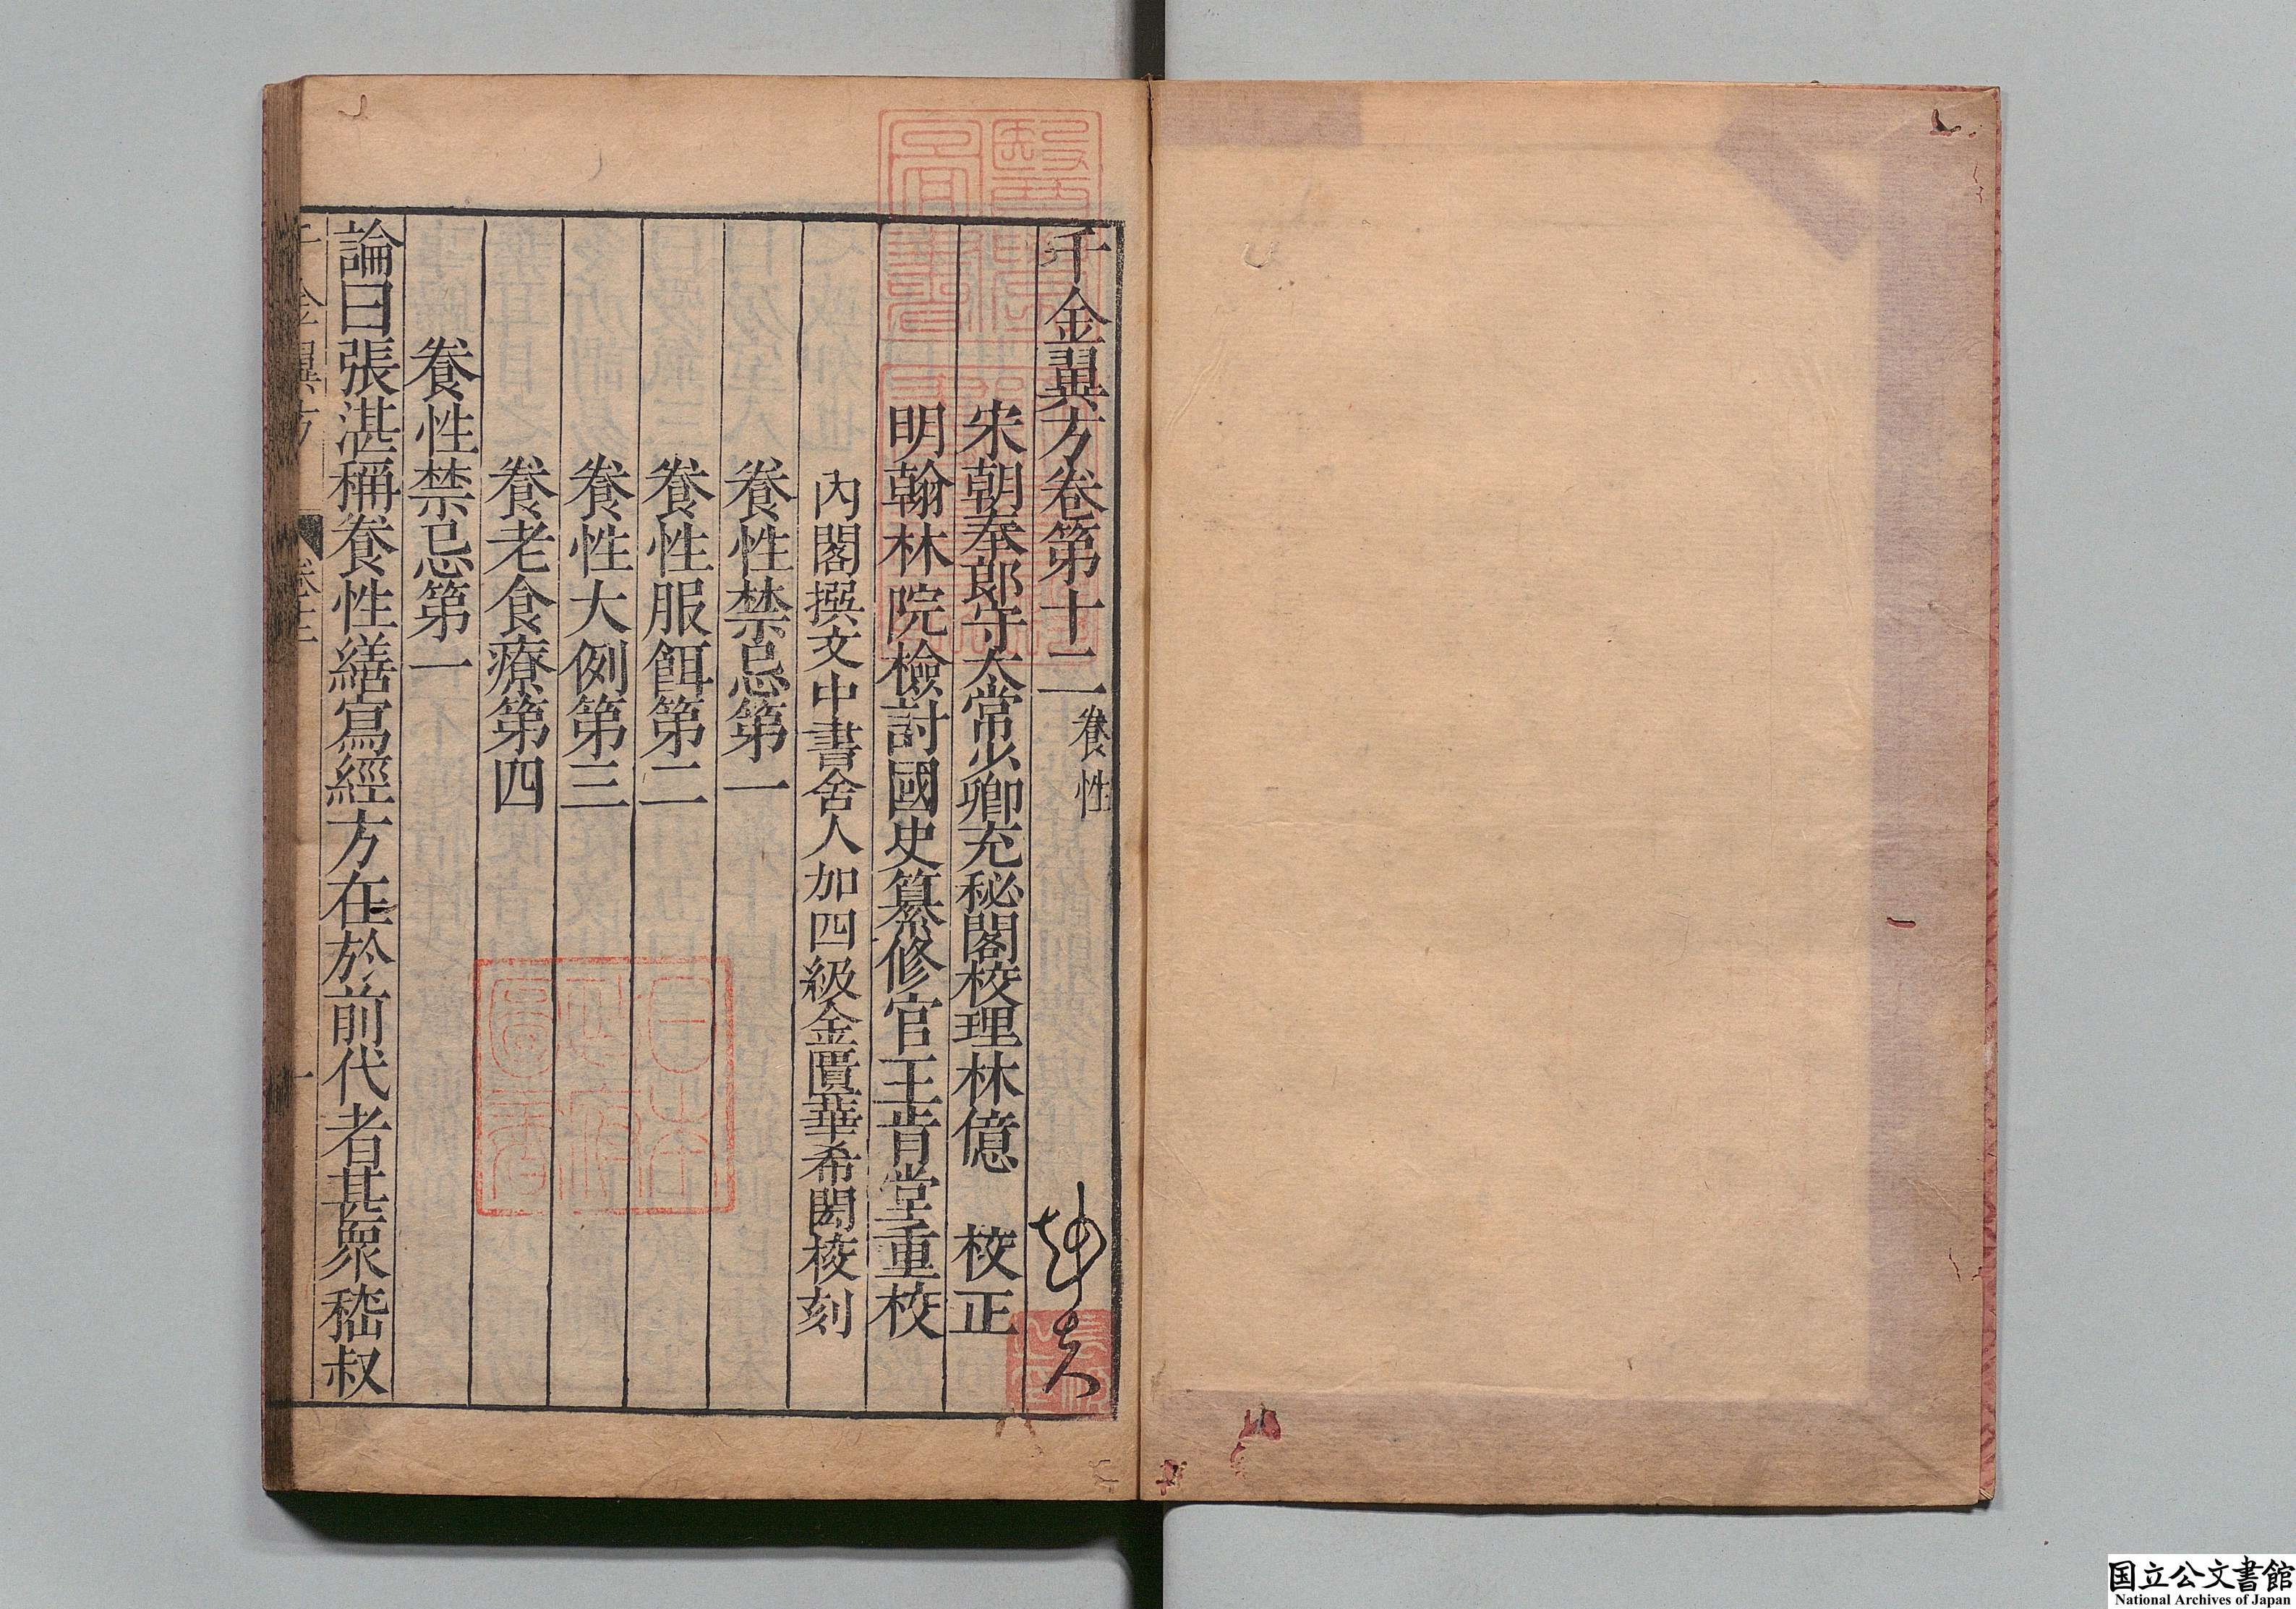 千金翼方卷第十二養性
宋朝奉郎守太常少卿充秘閣校理林億 校正
明翰林院檢討國史纂修官王肯堂重校
內閣撰文中書舍人加四級金匱華希閎校刻
養性禁忌第一
養性服餌第二
養性大例第三
養老食療第四
養性禁忌第一
論曰張湛稱養性繕寫經方在於前代者甚衆嵇叔
千金翼方 卷十二 一
日本政府圖書
国立公文書館
National Archives of Japan